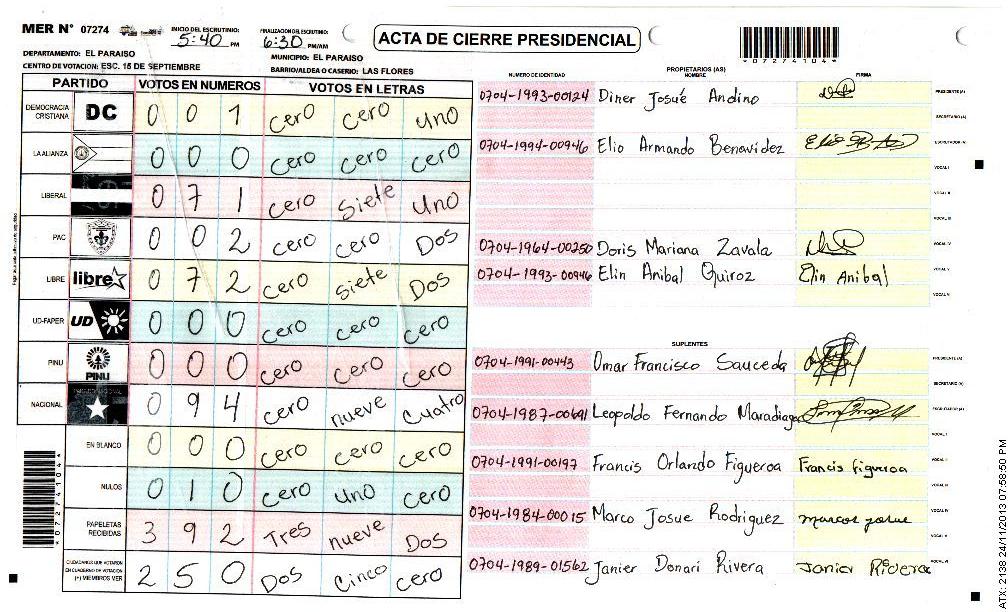 MER N° 07274
INICIO DEL ESCRUTINIO: 5:40 PM
FINALIZACION DEL ESCRUTINIO: 6:30 PM/AM
ACTA DE CIERRE PRESIDENCIAL
*07274104*
DEPARTAMENTO: EL PARAISO
MUNICIPIO: EL PARAISO
CENTRO DE VOTACION: ESC. 15 DE SEPTIEMBRE
BARRIO/ALDEA O CASERIO: LAS FLORES
PARTIDO VOTOS EN NUMEROS VOTOS EN LETRAS
DEMOCRACIA CRISTIANA DC 0 0 1 cero cero uno
LA ALIANZA 0 0 0 cero cero cero
LIBERAL 0 7 1 cero siete uno
PAC 0 0 2 cero cero Dos
LIBRE libre 0 7 2 cero siete Dos
UD-FAPER UD 0 0 0 cero cero cero
PINU PINU 0 0 0 cero cero cero
NACIONAL 0 9 4 cero nueve cuatro
EN BLANCO 0 0 0 cero cero cero
NULOS 0 1 0 cero uno cero
PAPELETAS RECIBIDAS 3 9 2 Tres nueve Dos
CIUDADANOS QUE VOTARON
EN CUADERNO DE VOTACION
(+) MIEMBROS MER 2 5 0 Dos cinco cero
*07274104*
PROPIETARIOS (AS)
NUMERO DE IDENTIDAD NOMBRE FIRMA
0704-1993-00124 Diner Josué Andino PRESIDENTE (A)
SECRETARIO (A)
0704-1994-00946 Elio Armando Benavidez ESCRUTADOR (A)
VOCAL I
VOCAL II
VOCAL III
0704-1964-00250 Doris Mariana Zavala VOCAL IV
0704-1993-00946 Elin Anibal Quiroz Elin Anibal VOCAL V
VOCAL VI
SUPLENTES
0704-1991-00443 Omar Francisco Sauceda PRESIDENTE (A)
SECRETARIO (A)
0704-1987-00691 Leopoldo Fernando Maradiaga ESCRUTADOR (A)
VOCAL I
0704-1991-00197 Francis Orlando Figueroa Francis figueroa VOCAL II
VOCAL III
0704-1984-00015 Marco Josue Rodriguez marcos josue VOCAL IV
VOCAL V
0704-1989-01562 Janier Donari Rivera Janier Rivera VOCAL VI
ATX: 2138 24/11/2013 07:58:50 PM